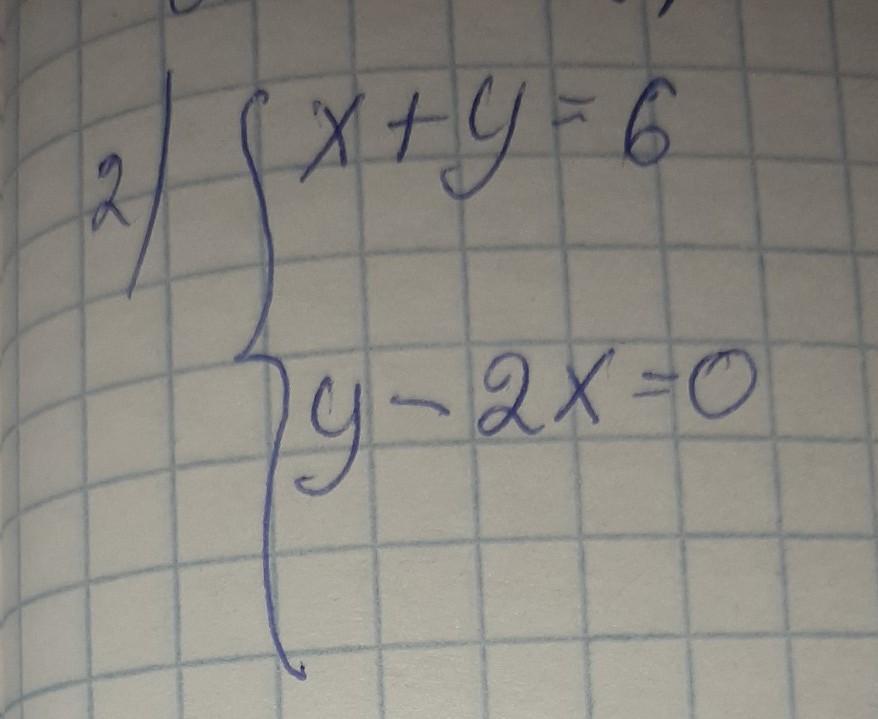 2) { x + y = 6
y - 2x = 0